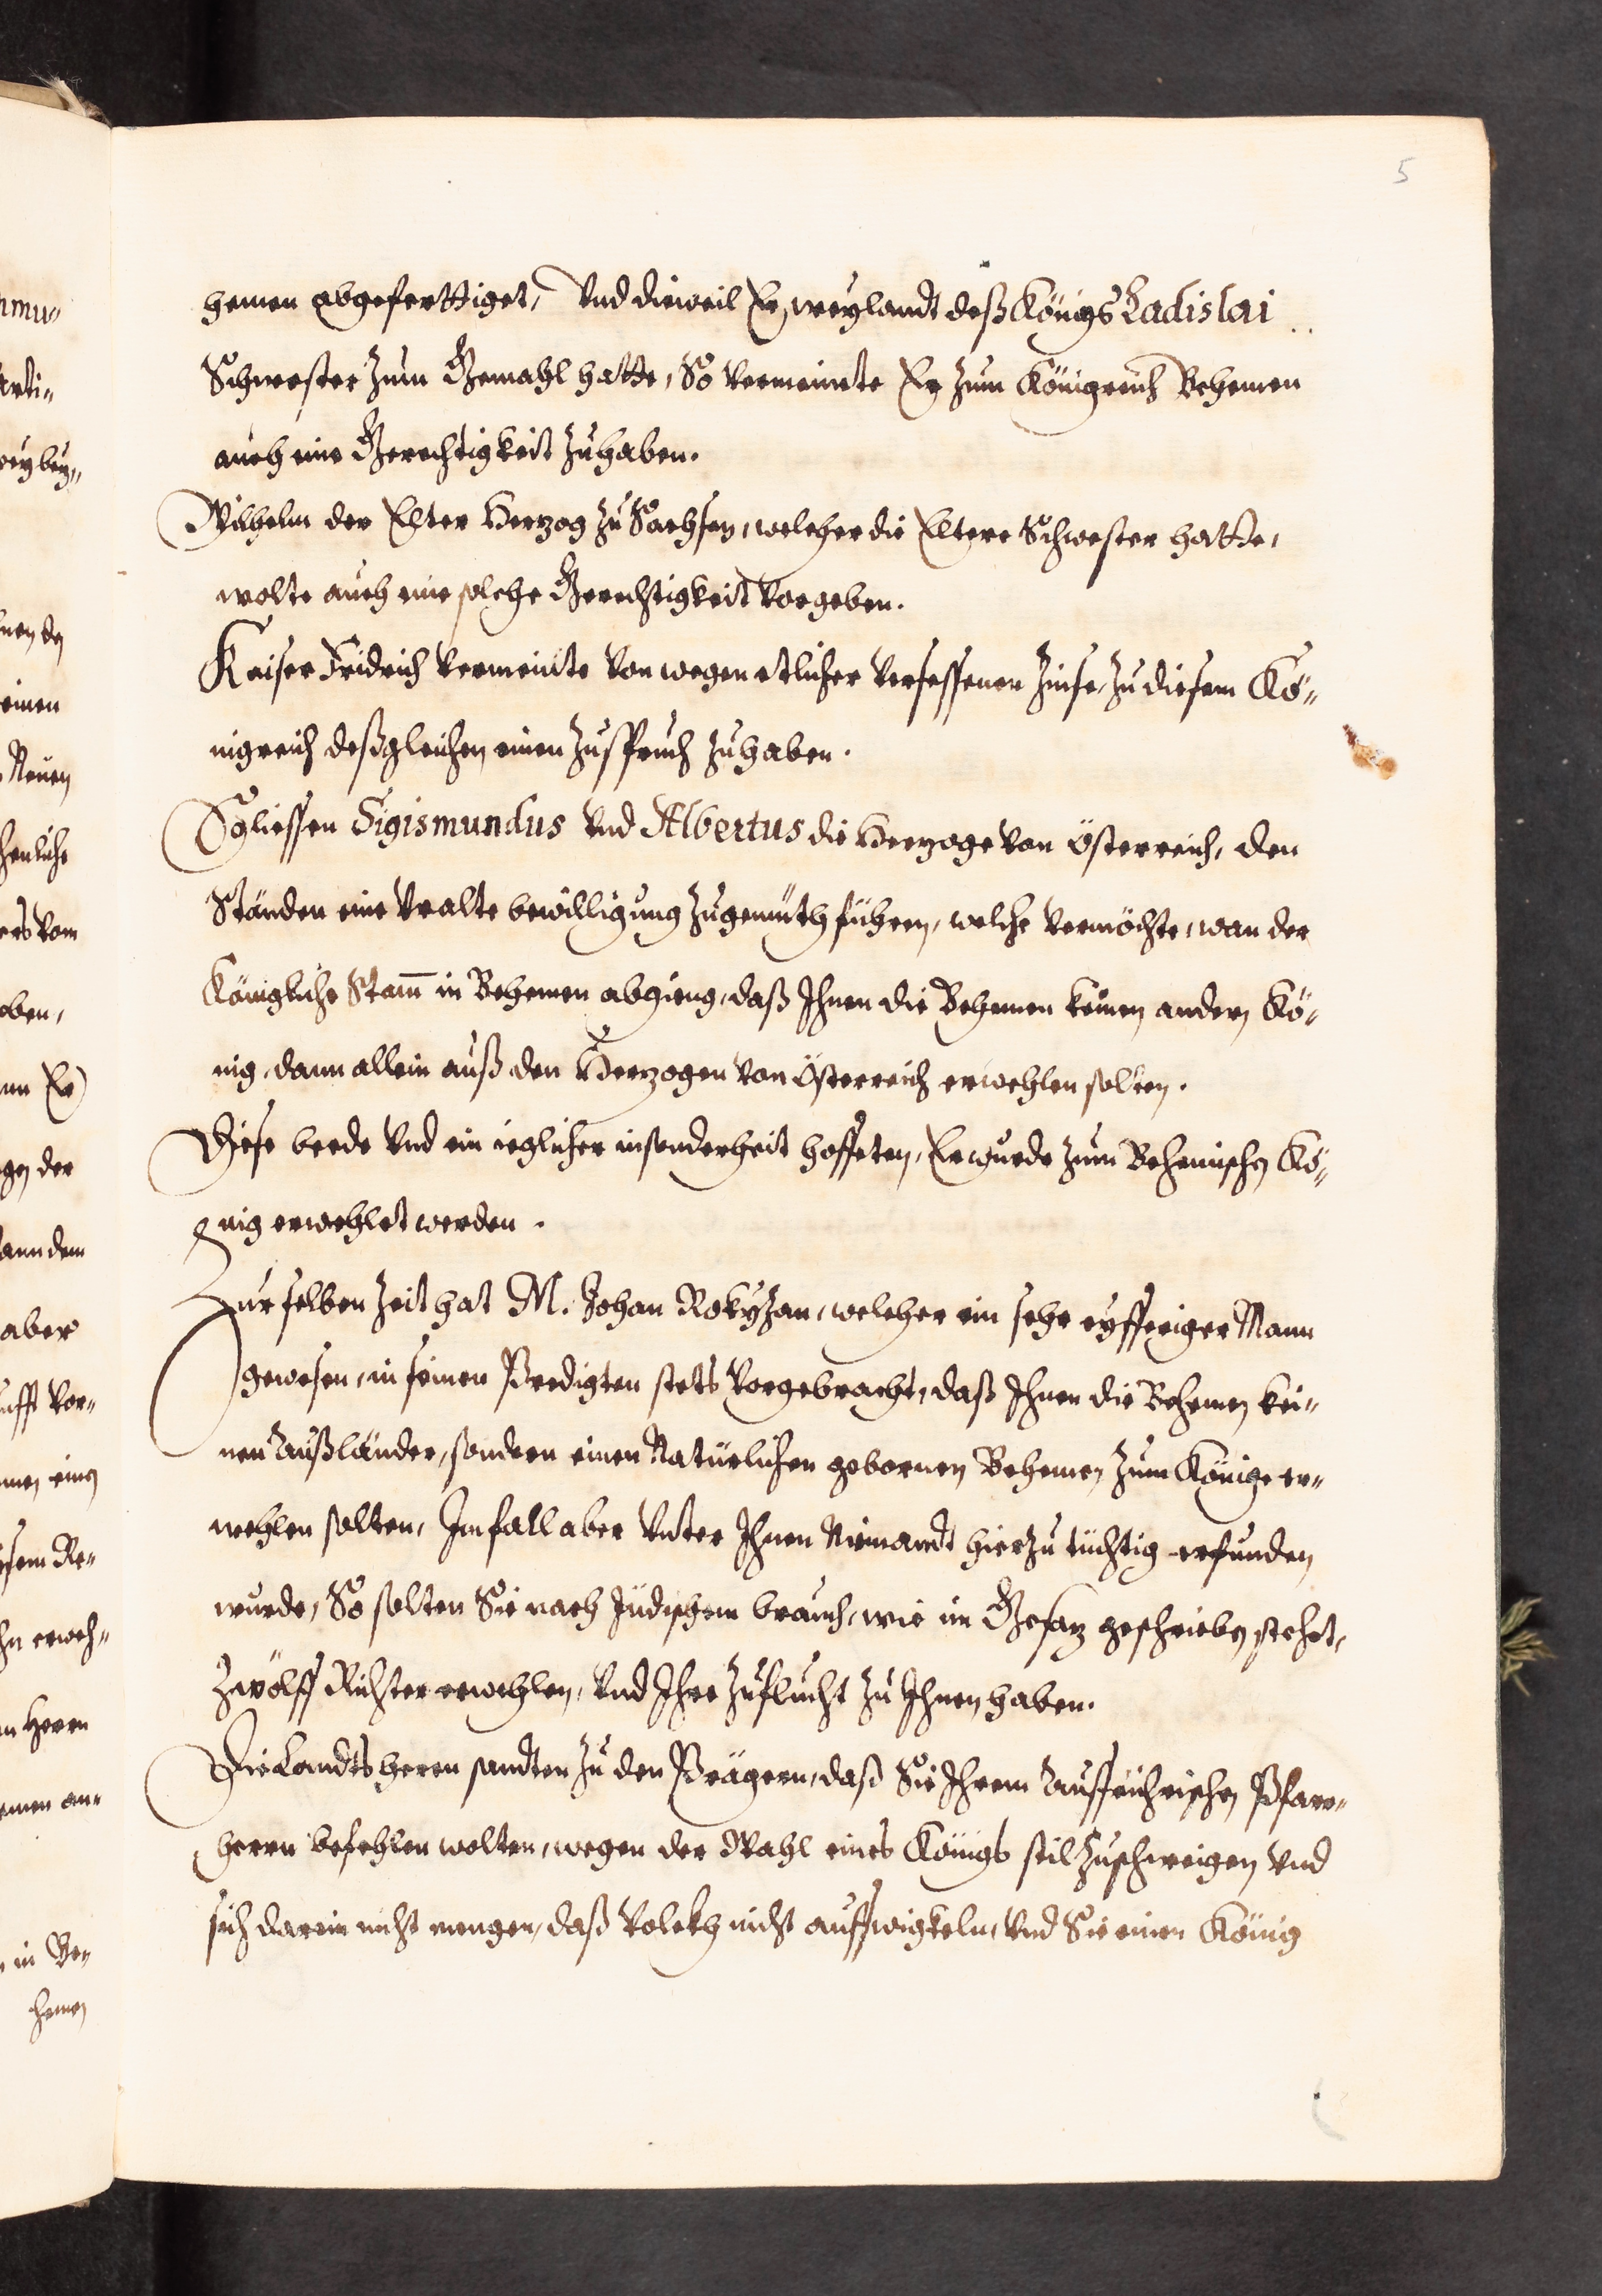 5
hemen abgeferttiget, Vnd dieweil Er, weylandt deß Königs Ladislai
Schwester zum Gemahl hatte, So vermeinte Er zum Königreich Behemen
auch eine Gerechtigkeit zuhaben.
Wilhelm der Elter Herzog zu Sachsen, welcher die Eltere Schwester hatte,
wolte auch eine solche Gerechtigkeit vorgeben.
Kaiser Fridrich vermeinte von wegen etlicher versessenen Zinse, zu diesem Kö-
nigreich deßgleichen einen Zuspruch zuhaben.
So liessen Sigismundus vnd Albertus die Herzoge von Österreich, den
Ständen eine Vralte bewilligung zugemüth führen, welche vermöchte, wan der
Königliche Stam̄ in Behemen abgieng, daß Ihnen die Behemen keinen andern Kö-
nig, dann allein auß den Herzogen von Österreich erwehlen solten.
Diese beede vnd ein ieglicher insonderheit hoffeten, Er wurde zum Behemischen Kö-
nig erwehlet werden.
Zur selben Zeit hat M. Johan Rokyzan, welcher ein sehr eyfferiger Mann
gewesen, in seinen Predigten stets vorgebracht, daß Ihnen die Behemen kei-
nen Außländer, sondern einen Natürlichen gebornen Behemen zum Könige er-
wehlen solten, Im fall aber vnter Ihnen Niemandt hierzu tüchtig erfunden
wurde, So solten Sie nach Jüdischem brauch, wie im Gesatz geschrieben stehet,
Zwölff Richter erwehlen, vnd Ihre Zuflucht zu Ihnen haben.
Die Landtsherren sandten zu den Prägern, daß Sie Ihrem Auffrührischen Pfarr-
herrn befehlen wolten, wegen der Wahl eines Königs stil zuschweigen vnd
sich darein nicht mengen, daß Volckh nicht auffwigkeln, vnd Sie einen König